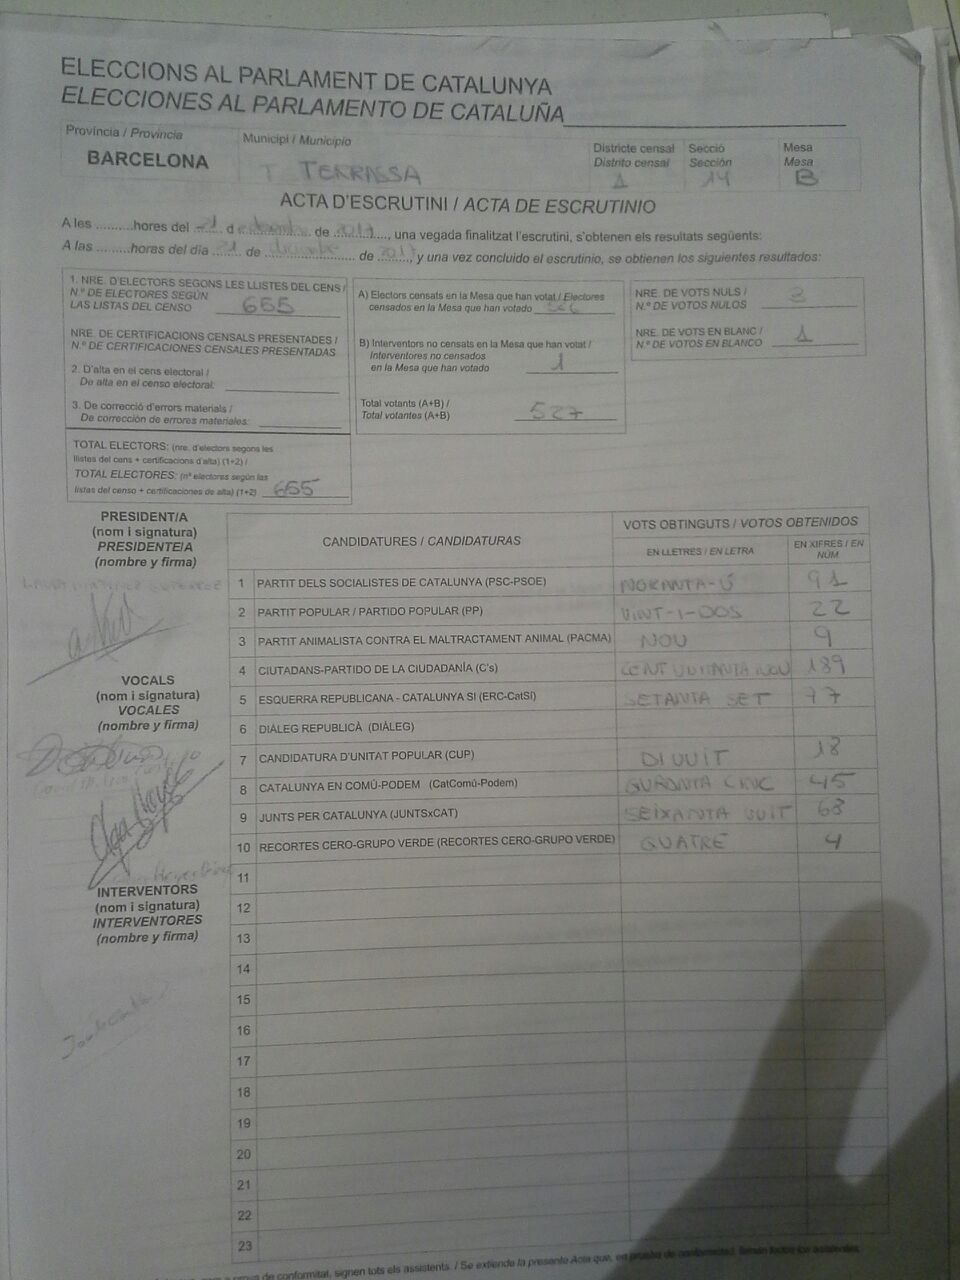 ELECCIONS AL PARLAMENT DE CATALUNYA
ELECCIONES AL PARLAMENTO DE CATALUÑA
Província / Provincia
BARCELONA
Municipi / Municipio
TERRASSA
Districte censal
Distrito censal
1
Secció
Sección
14
Mesa
Mesa
B
ACTA D'ESCRUTINI / ACTA DE ESCRUTINIO
A les ..........hores del 21 d de 2017, una vegada finalitzat l'escrutini, s'obtenen els resultats següents:
A las .........horas del día 21 de diciembre de 2017, y una vez concluido el escrutinio, se obtienen los siguientes resultados:
1. NRE. D'ELECTORS SEGONS LES LLISTES DEL CENS /
N.º DE ELECTORES SEGÚN
LAS LISTAS DEL CENSO 655
NRE. DE CERTIFICACIONS CENSALS PRESENTADES /
N.º DE CERTIFICACIONES CENSALES PRESENTADAS
2. D'alta en el cens electoral /
De alta en el censo electoral:
3. De correcció d'errors materials /
De corrección de errores materiales:
TOTAL ELECTORS: (nre. d'electors segons les
llistes del cens + certificacions d'alta) (1+2) /
TOTAL ELECTORES: (nº electores según las
listas del censo + certificaciones de alta) (1+2) 655
A) Electors censats en la Mesa que han votat / Electores
censados en la Mesa que han votado 526
B) Interventors no censats en la Mesa que han votat /
Interventores no censados
en la Mesa que han votado 1
Total votants (A+B) /
Total votantes (A+B) 527
NRE. DE VOTS NULS /
N.º DE VOTOS NULOS 3
NRE. DE VOTS EN BLANC /
N.º DE VOTOS EN BLANCO 1
PRESIDENT/A
(nom i signatura)
PRESIDENTE/A
(nombre y firma)
VOCALS
(nom i signatura)
VOCALES
(nombre y firma)
INTERVENTORS
(nom i signatura)
INTERVENTORES
(nombre y firma)
CANDIDATURES / CANDIDATURAS
VOTS OBTINGUTS / VOTOS OBTENIDOS
EN LLETRES / EN LETRA
EN XIFRES / EN NÚM.
1 PARTIT DELS SOCIALISTES DE CATALUNYA (PSC-PSOE) NORANTA-Ú 91
2 PARTIT POPULAR / PARTIDO POPULAR (PP) VINT-I-DOS 22
3 PARTIT ANIMALISTA CONTRA EL MALTRACTAMENT ANIMAL (PACMA) NOU 9
4 CIUTADANS-PARTIDO DE LA CIUDADANÍA (C's) CENT VUITANTA NOU 189
5 ESQUERRA REPUBLICANA - CATALUNYA SÍ (ERC-CatSí) SETANTA SET 77
6 DIÀLEG REPUBLICÀ (DIÀLEG)
7 CANDIDATURA D'UNITAT POPULAR (CUP) DIVUIT 18
8 CATALUNYA EN COMÚ-PODEM (CatComú-Podem) QUARANTA CINC 45
9 JUNTS PER CATALUNYA (JUNTSxCAT) SEIXANTA VUIT 68
10 RECORTES CERO-GRUPO VERDE (RECORTES CERO-GRUPO VERDE) QUATRE 4
11
12
13
14
15
16
17
18
19
20
21
22
23
prova de conformitat, signen tots els assistents. / Se extiende la presente Acta que, en prueba de conformidad, firman todos los asistentes.